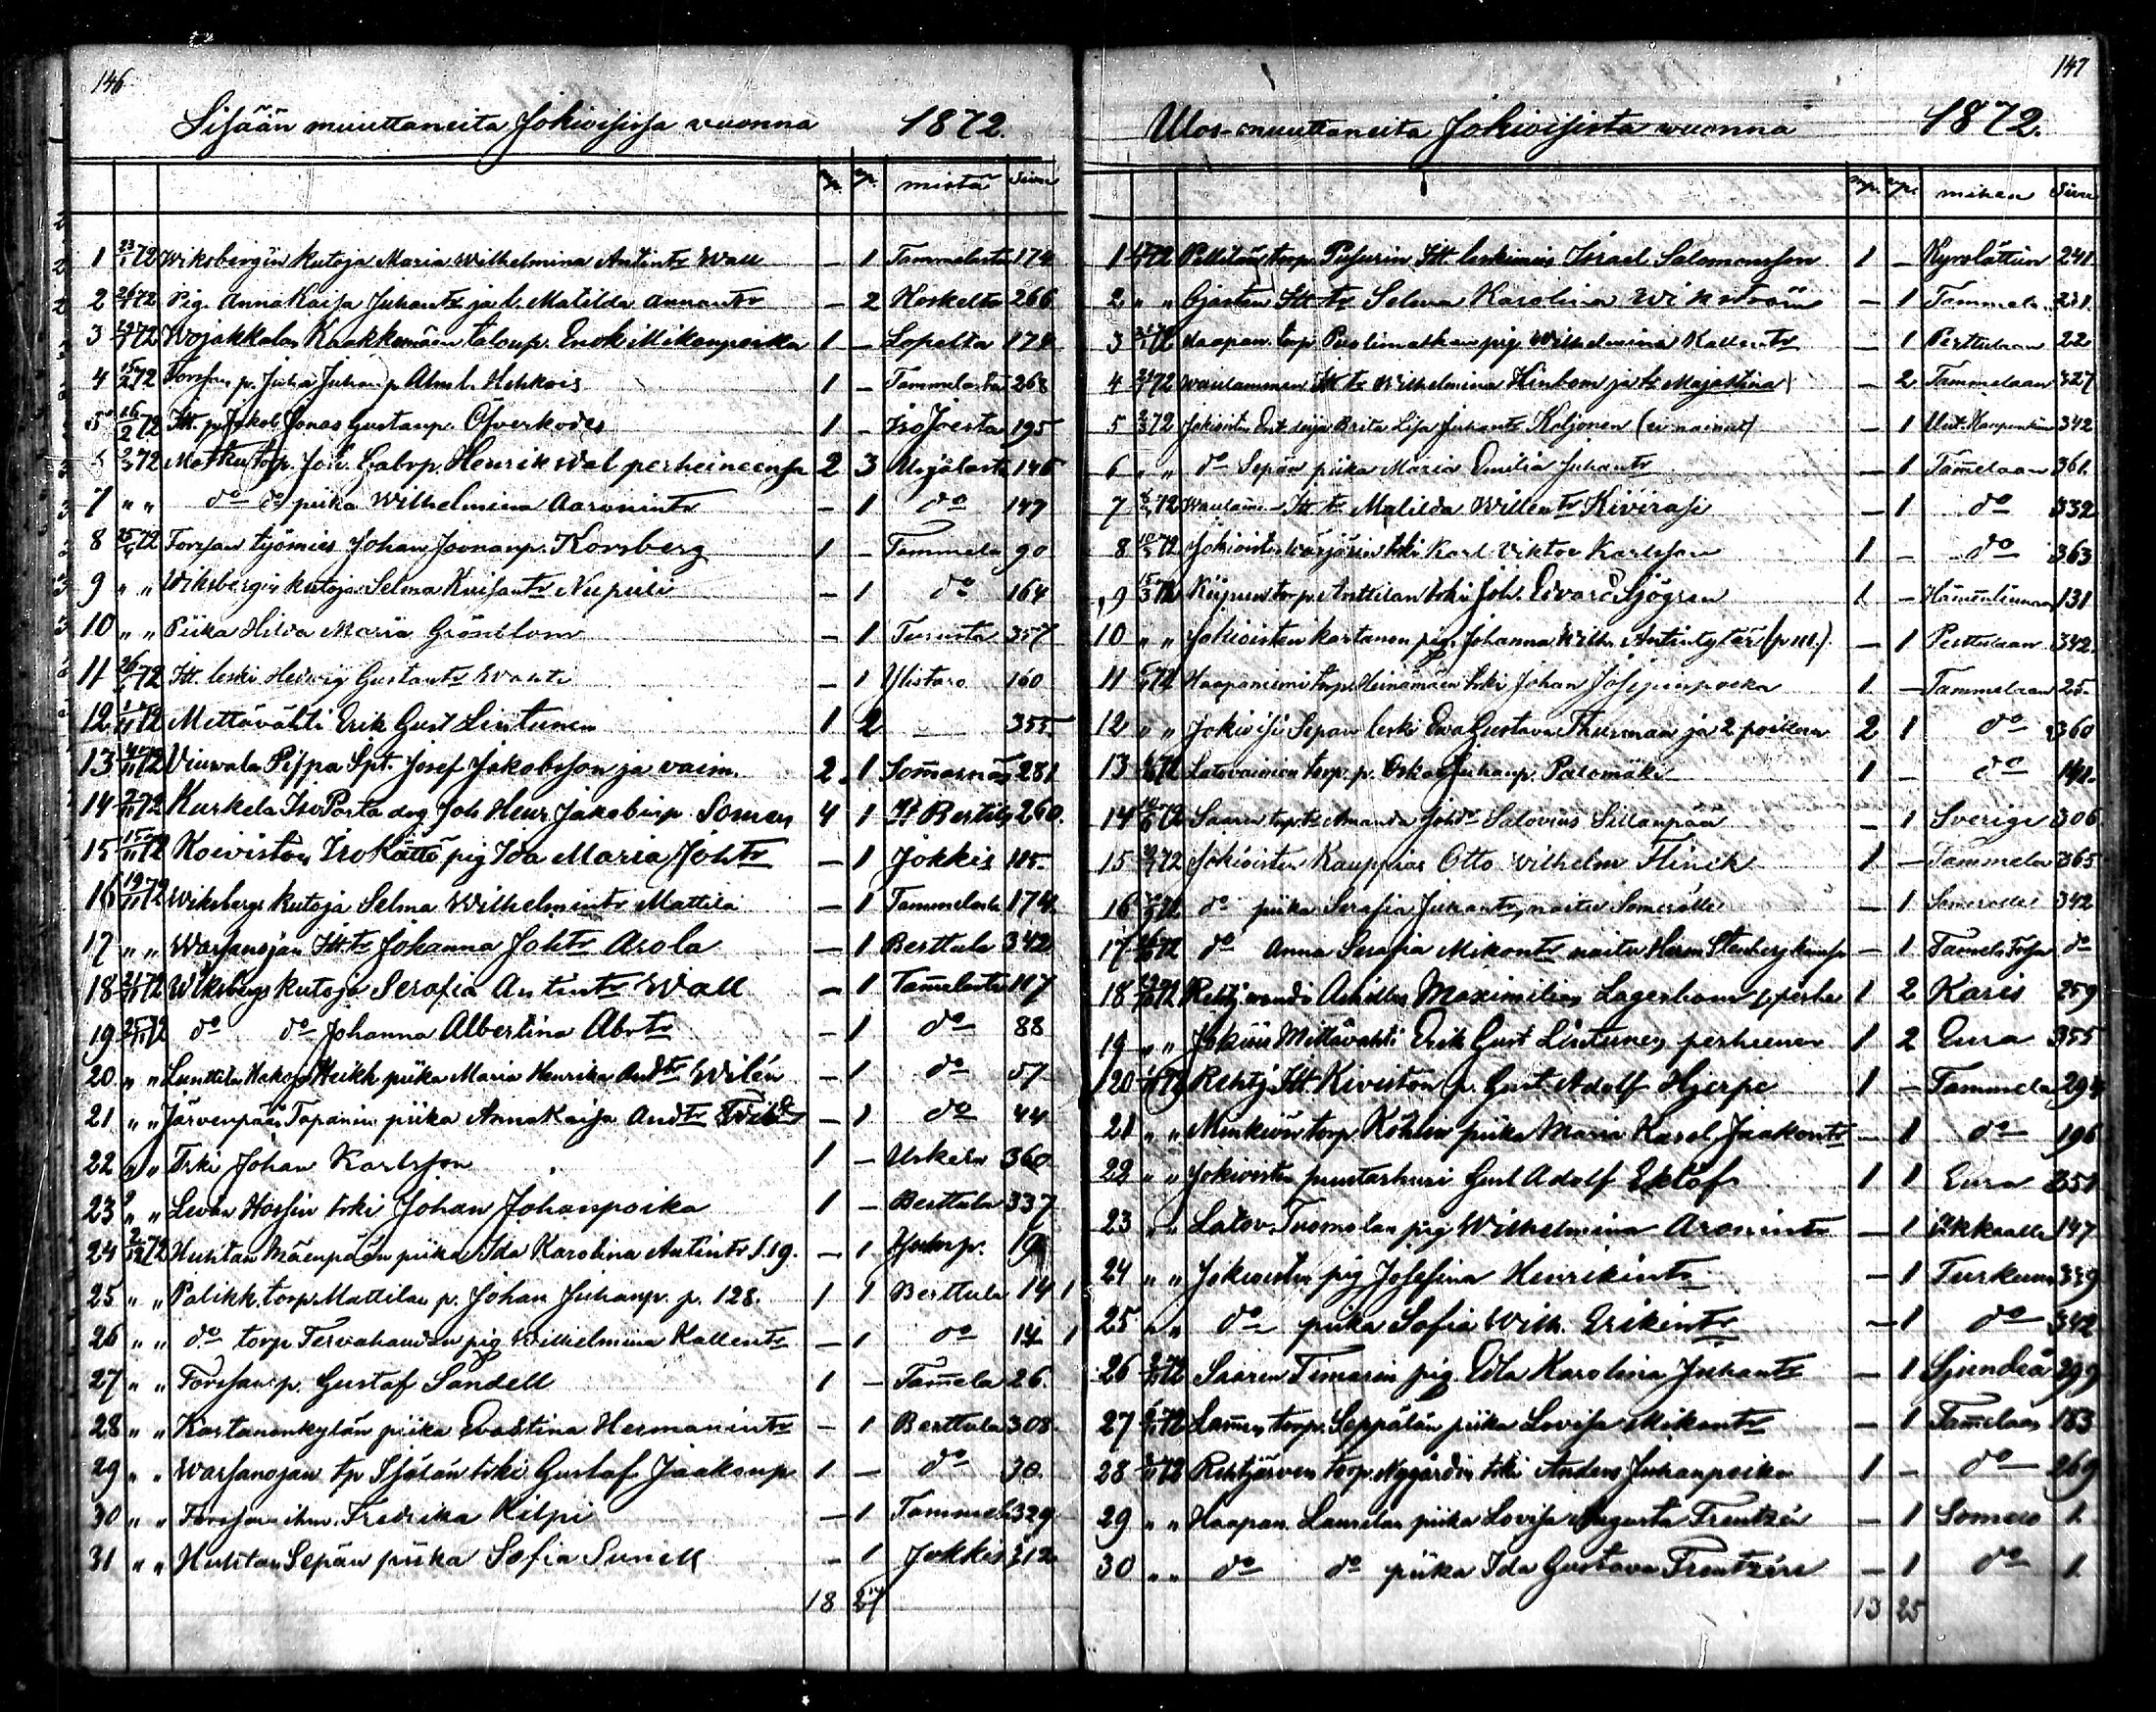 146
Sisään muuttaneita Jokivisissa vuonna 1872.
mp. vp. mistä Sivu
1 23/1 72 Wiksbergin kutoja Maria Wilhelmina Antintr Wall — 1 Tammelasta 174
2 26/1 72 Pig. Anna Kaisa Juhantr ja t. Matilda Annantr — 2 Koskelta 266
3 72 Wojakkalan Kaakkomäen taloup. Enok Mikonpoika 1 — Lopelta 174
4 15/2 72 Forssan p. Juha Juhanp. 1 — Tammelasta 268
5 16/2 72 Itt. p. Jakob Jonas Gustavp. Öfverkodes 1 — IsoJoesta 195
6 2/3 72 Matku torp. Joh. Gabrp. Henrik Wal perheineensa 2 3 Urjalasta 146
7 " " do do piika Wilhelmina Aaronintr — 1 do 147
8 25/4 72 Forssan työmies Johan Joonanp. Korsberg 1 — Tammela 90
9 " " Wiksbergin kutoja Selma Kuisantr Nupuli — 1 do 164
10 " " Piika Hilda Maria Grönblom — 1 Turusta 257
11 26/6 72 Itt. leski Hedvig Gustantr — 1 Ylistaro 160
12 72 Mettävähti Erik Gust Lintunen 1 2 — 355
13 72 Viuvala Pispa Spt. Josef Jakobsson ja vaim. 2 1 Somarnäs 281
14 72 Kurkela IsoPosta drg Joh Henr. Jakobinp. Somen 4 1 St Bertils 260.
15 15/11 72 Koiviston IsoKättö pig Ida Maria Johtr — 1 Jokkis 185
16 19/11 72 Wiksbergs kutoja Selma Wilhelmintr Mattila — 1 Tammelasta 174.
17 " " Warsanojan Itt. tr Johanna Johtr Arola — 1 Berttula 342
18 72 Wiksbergs kutoja Serafia Antintr Wall — 1 Tamelasta 117
19 25/11 72 do do Johanna Albertina Abrtr — 1 do 88
20 " " Lunttila Hakop Heikk piika Maria Henrika Andtr Wilén — 1 do 57
21 " " Järvenpään Tapanin piika Anna Kaisa Andtr — 1 do 44
22 " " Trki Johan Karlsson 1 — Urkera 360
23 " " Levän Hossin trki Johan Johanpoika 1 — Berttula 337
24 2/12 72 Huhtan Mäenpään piika Ida Karolina Antintr s. 19. — 1
25 " " Palikk. torp. Mattilan p. Johan Juhanp. p. 128. 1 1 Berttula 14 1
26 " " do torp Tervahaudan pig Wilhelmina Kallentr — 1 do 14 1
27 " " Forssan p. Gustaf Sandell 1 — Tamela 26.
28 " " Kartanonkylän piika Evastina Hermanintr — 1 Berttula 308.
29 " " Warsanojan tp Sjölän trki Gustaf Jaakonp 1 — do 30.
30 " " Forssan ihm. Fredrika Kilpi — 1 Tammela 329
31 " " Huhtan Sepän piika Sofia Sunell — 1 Jokkis 312
18
147
Ulos-muuttaneita Jokivisista wuonna 1872.
mp. vp. mihen Sivu
1 72 Pellilän torp. Pusurin Itt. leskimies Israel Salomonsson 1 — Kyrölättiin 241
2 " " Gjasten Itt. tr Selma Karolina Wikström — 1 Tammela
3 72 Haapan. torp. Puolimatkan pig Wilhelmina Kallentr — 1 Perttulaan 22
4 72 Waulammen Itt tr Wilhelmina Hinbom ja tr Majastina — 2 Tammelaan 327
5 2/3 72 Jokioisten Ent. deija Brita Lisa Juhantr Koljonen (ei nainut) — 1 342
6 " " do Sepän piika Maria Emilia Juhantr — 1 Tamelaan 361.
7 72 Waulami Itt tr Matilda Willentr Kivirasi — 1 do 332
8 72 Jokioisten Wärjärin trki Karl Viktor Karlsson 1 — do 363
9 15/3 72 Kiipun torp. Anttilan trki Joh. Edvard Sjögren 1 — Hämenlinnan 131
10 " " Jokioisten kartanon pig. Johanna Wilh. Antintytär (p. m.) — 1 Perttulaan 342.
11 72 Haapaniemi torp. Heinämäen trki Johan Josepinpoika 1 — Tammelaan 25.
12 " " Jokivisi Sepän leski Eva Gustava Thurman ja 2 poikaa 2 1 do 360
13 72 Latovainion torp. p. Oskar Juhanp. Palomäki 1 — do 141.
14 72 Saaren torp. tr Amanda Johdr Salovius Sillanpää — 1 Sverige 306
15 72 Jokioisten Kauppias Otto Wilhelm Flinck 1 — Tammela 365
16 72 do piika Serafia Juhantr, naitu Somerolle — 1 Somerolle 342
17 72 do Anna Serafia Mikontr naitu Herm Stenberg — 1 do
18 72 Rehtj. wouti Achilles Maximilian Lagerbom perhe 1 2 Karis 259
19 " " Jokiois Mettävahti Erik Gust Lintunen perhienen 1 2 Eura 355
20 72 Rehtj. Itt. Kiviston p. Gust. Adolf Hjerpe 1 — Tammela 294
21 " " Minkiön torp. Köhlin piika Maria Karol. Jaakontr — 1 do 196
22 " " Jokioisten puutarhuri Gust Adolf Eklöf 1 1 Eura 351
23 " " Latov. Tuomolan pig Wilhelmina Aronintr — 1 147
24 " " Jokioisten pig Josefina Henrikintr — 1 Turkuun 339
25 " " do piika Sofia Wilh. Erikintr — 1 do 342
26 72 Saaren Timarin pig. Eda Karolina Juhantr — 1 Sjundeå 299
27 72 Lamin torp. Seppälän piika Lovisa Mikontr — 1 Tamelaan 183
28 72 Rehtjärven torp. Nygårdin trki Anders Juhanpoika 1 — do 269
29 " " Haapan. Laurilan piika Lovisa Augusta Frentzén — 1 Somero 1
30 " " do do piika Ida Gustava Frentzén — 1 do 1
13 25